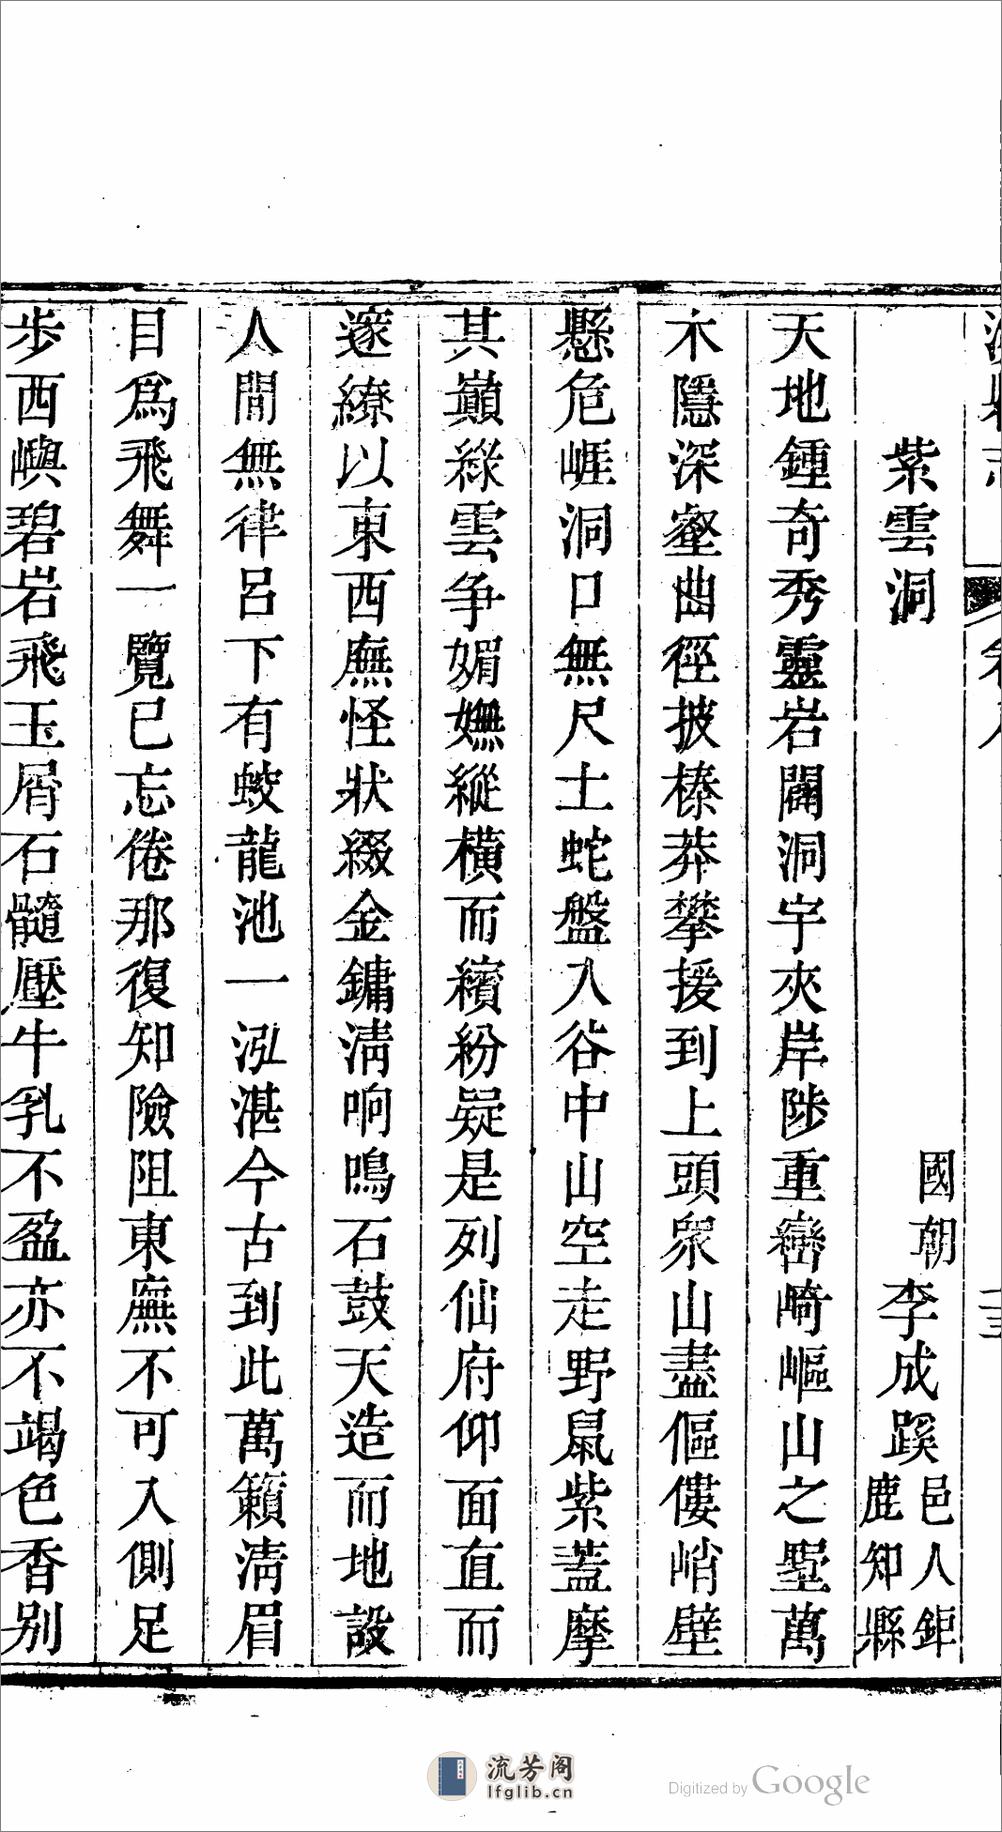 紫雲洞
國朝李成蹊邑人鉅鹿知縣
天地鍾奇秀靈岩闢洞宇夾岸陟重巒崎嶇山之墅萬
木隱深壑曲徑披榛莽攀援到上頭衆山盡傴僂峭壁
懸危崕洞口無尺土蛇盤入谷中山空走野鼠紫蓋摩
其巔綠雲争媚嫵縱橫而繽紛疑是列仙府仰面直而
邃繚以東西廡怪狀綴金鏞清响鳴石鼓天造而地設
人間無律呂下有蛟龍池一泓湛今古到此萬籟清眉
目爲飛舞一覽已忘倦那復知險阻東廡不可入側足
步西嶼碧岩飛玉屑石髓壓牛乳不盈亦不竭色香別
流芳阁
lfglib.cn
Digitized by Google